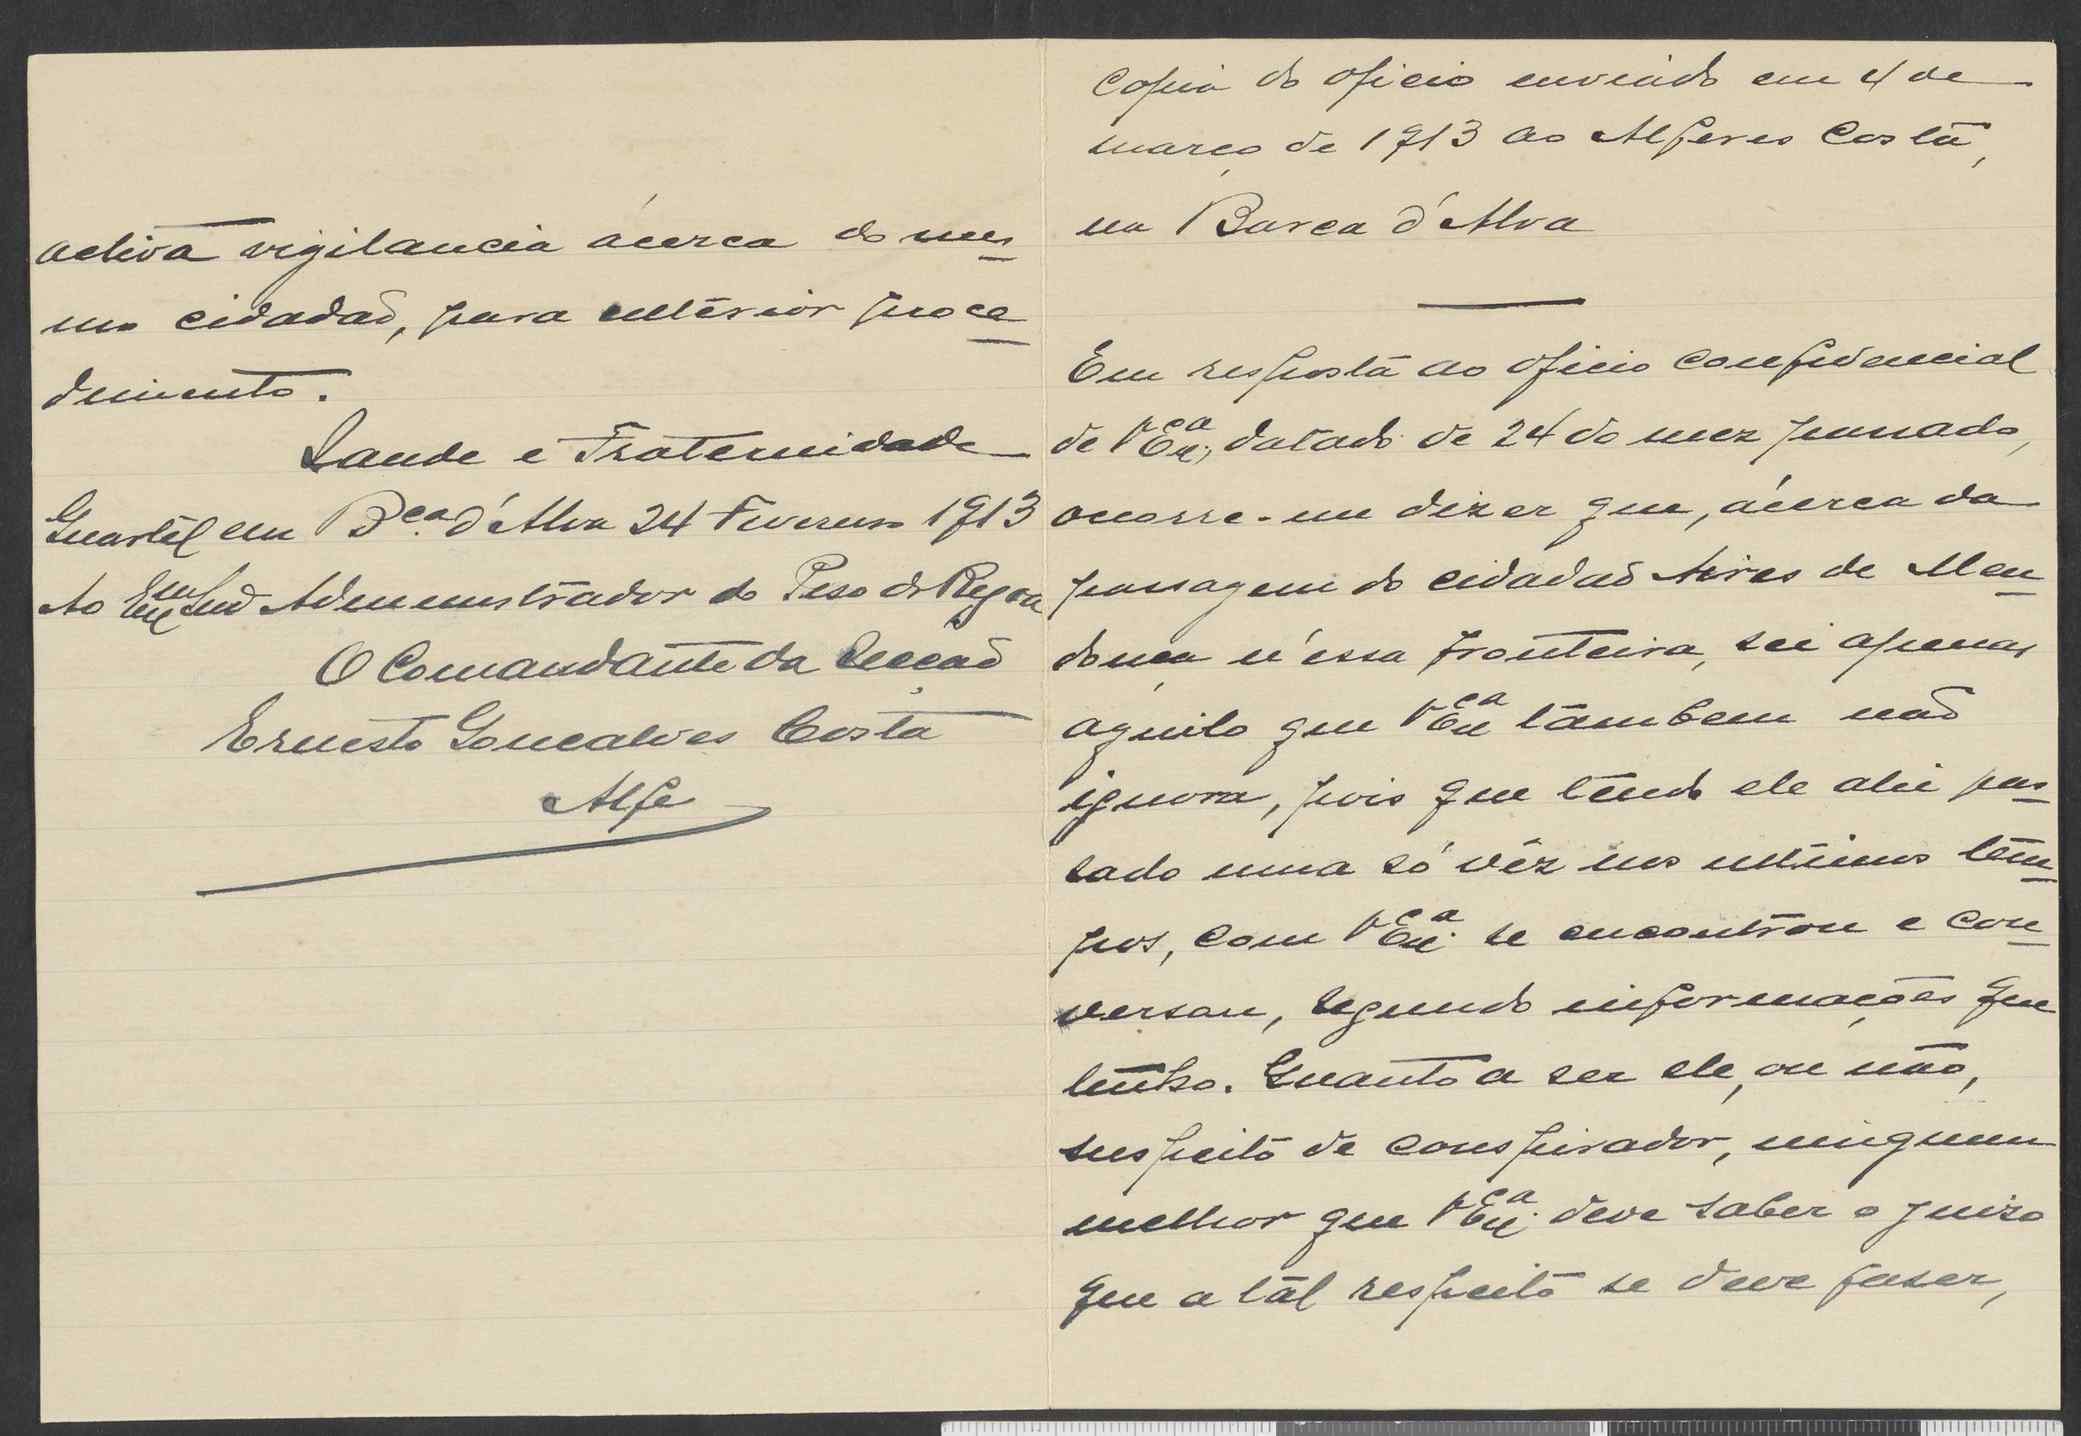 activa vigilancia ácerca do mes-
mo cidadaõ, para ulterior proce-
dimento.
Saude e Fraternidade
Quartel em B.ca d'Alva 24 Fevereiro 1913
Ao Exmo Snr Administrador do Peso da Regoa
O Comandante da Secçaõ
Ernesto Goncalves Costa
Alfe
Copia do oficio enviado em 4 de
março de 1913 ao Alferes Costa,
na Barca d'Alva
Em resposta ao oficio confidencial
de V Exca, datado de 24 do mez passado,
ocorre-me dizer que, ácerca da
passagem do cidadaõ Aires de Men-
donça n'essa fronteira, sei apenas
aquilo que V Exca tambem naõ
ignora, pois que tendo ele ali pas-
sado uma só vêz nos ultimos tem-
pos, com V Exca. se encontrou e con-
versou, segundo informações que
tenho. Quanto a ser ele, ou não,
suspeito de conspirador, ninguem
melhor que V Exca. deve saber o juizo
que a tal respeito se deve fazer,